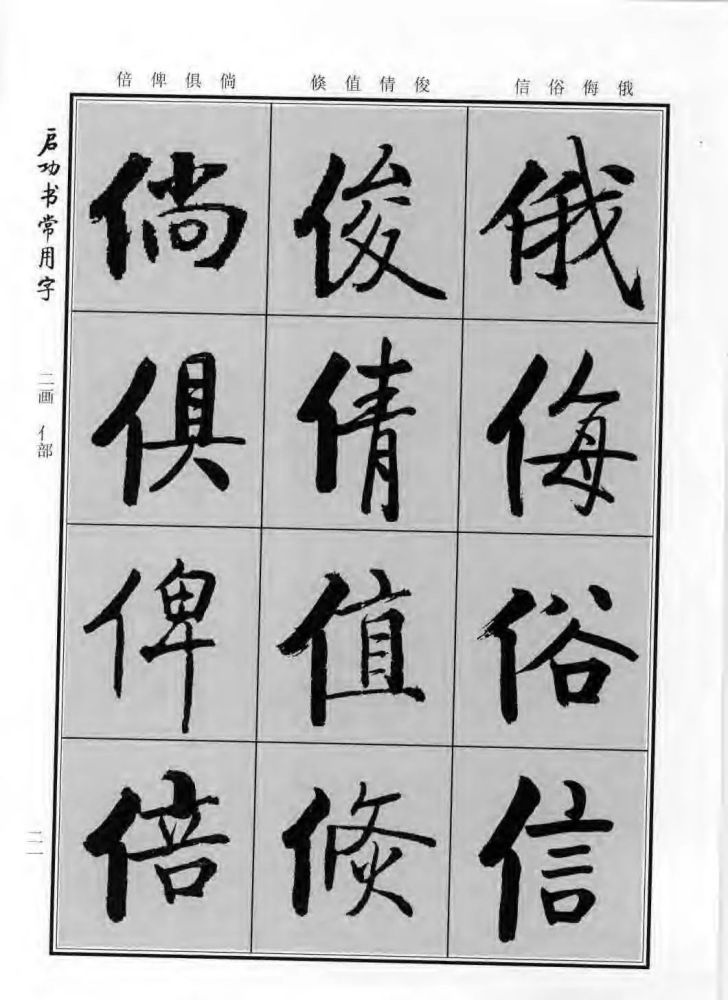 倍俾俱倘 倏值倩俊 信俗侮俄
启功书常用字
二画 亻部
二一
俄侮俗信
俊倩值倏
倘俱俾倍